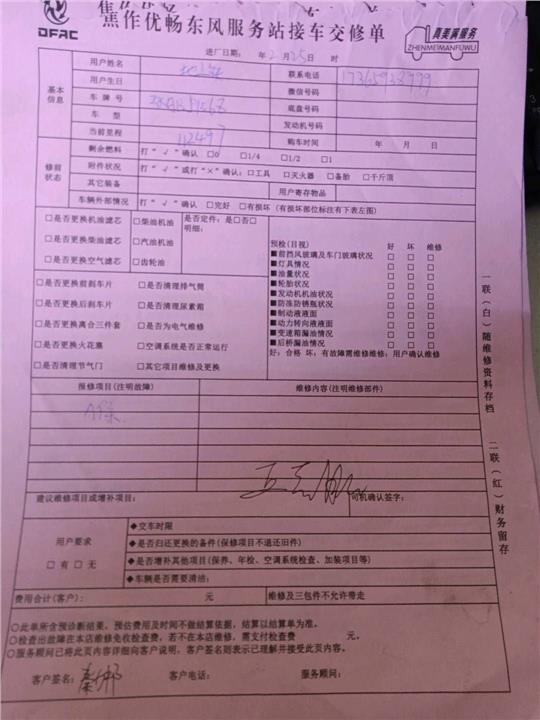 DFAC
焦作优畅东风服务站接车交修单
真美满服务
ZHENMEIMANFUWU
进厂日期： 年2月25日 时
基本信息
用户姓名 联系电话
用户生日 微信号码
车牌号 底盘号码
车型 发动机号码
当前里程 112497 购车时间 年 月 日
修前状态
剩余燃料 打“√”确认 □0 □1/4 □1/2 □1
附件状况 打“√”或打“×”确认：□工具 □灭火器 □备胎 □千斤顶
其它装备 用户寄存物品
车辆外部情况 打“√”确认 □完好 □有损坏（有损坏部位标注有下表左图）
□是否更换机油滤芯 □柴油机油 是否定件：是□否□
明细：
□是否更换柴油滤芯 □汽油机油
□是否更换空气滤芯 □齿轮油
□是否更换前刹车片 □是否清理排气筒
□是否更换后刹车片 □是否清理尿素箱
□是否更换离合三件套 □是否为电气维修
□是否更换火花塞 □空调系统是否正常运行
□是否清理节气门 □其它项目维修及更换
预检（目视） 好 坏 维修
■前挡风玻璃及车门玻璃状况 □ □ □
■灯具情况 □ □ □
■油量状况 □ □ □
■轮胎状况 □ □ □
■发动机机油状况 □ □ □
■防冻防锈瓶状况 □ □ □
■制动液液面 □ □ □
■动力转向液液面 □ □ □
■变速箱漏油情况 □ □ □
■后桥漏油情况 □ □ □
好：合格 坏：有故障需维修维修：用户确认维修
报修项目（注明故障） 维修内容（注明维修部件）
建议维修项目或增补项目： 司机确认签字：
用户要求
□有□无
◆交车时限
◆是否归还更换的备件（保修项目不退还旧件）
◆是否增补其他项目（保养、年检、空调系统检查、加装项目等）
◆车辆是否需要清油：
费用合计（客户）： 元 维修及三包件不允许带走
○此单所含预诊断结果、预估费用及时间不做结算依据，结算以结算单为准。
○检查出故障在本店维修免收检查费，若不在本店维修，需支付检查费 元。
○服务顾问已将此页内容详细向客户说明，客户签名则表示已理解并接受此页内容。
客户签名： 客户电话： 服务顾问：
一联（白）随维修资料存档
二联（红）财务留存